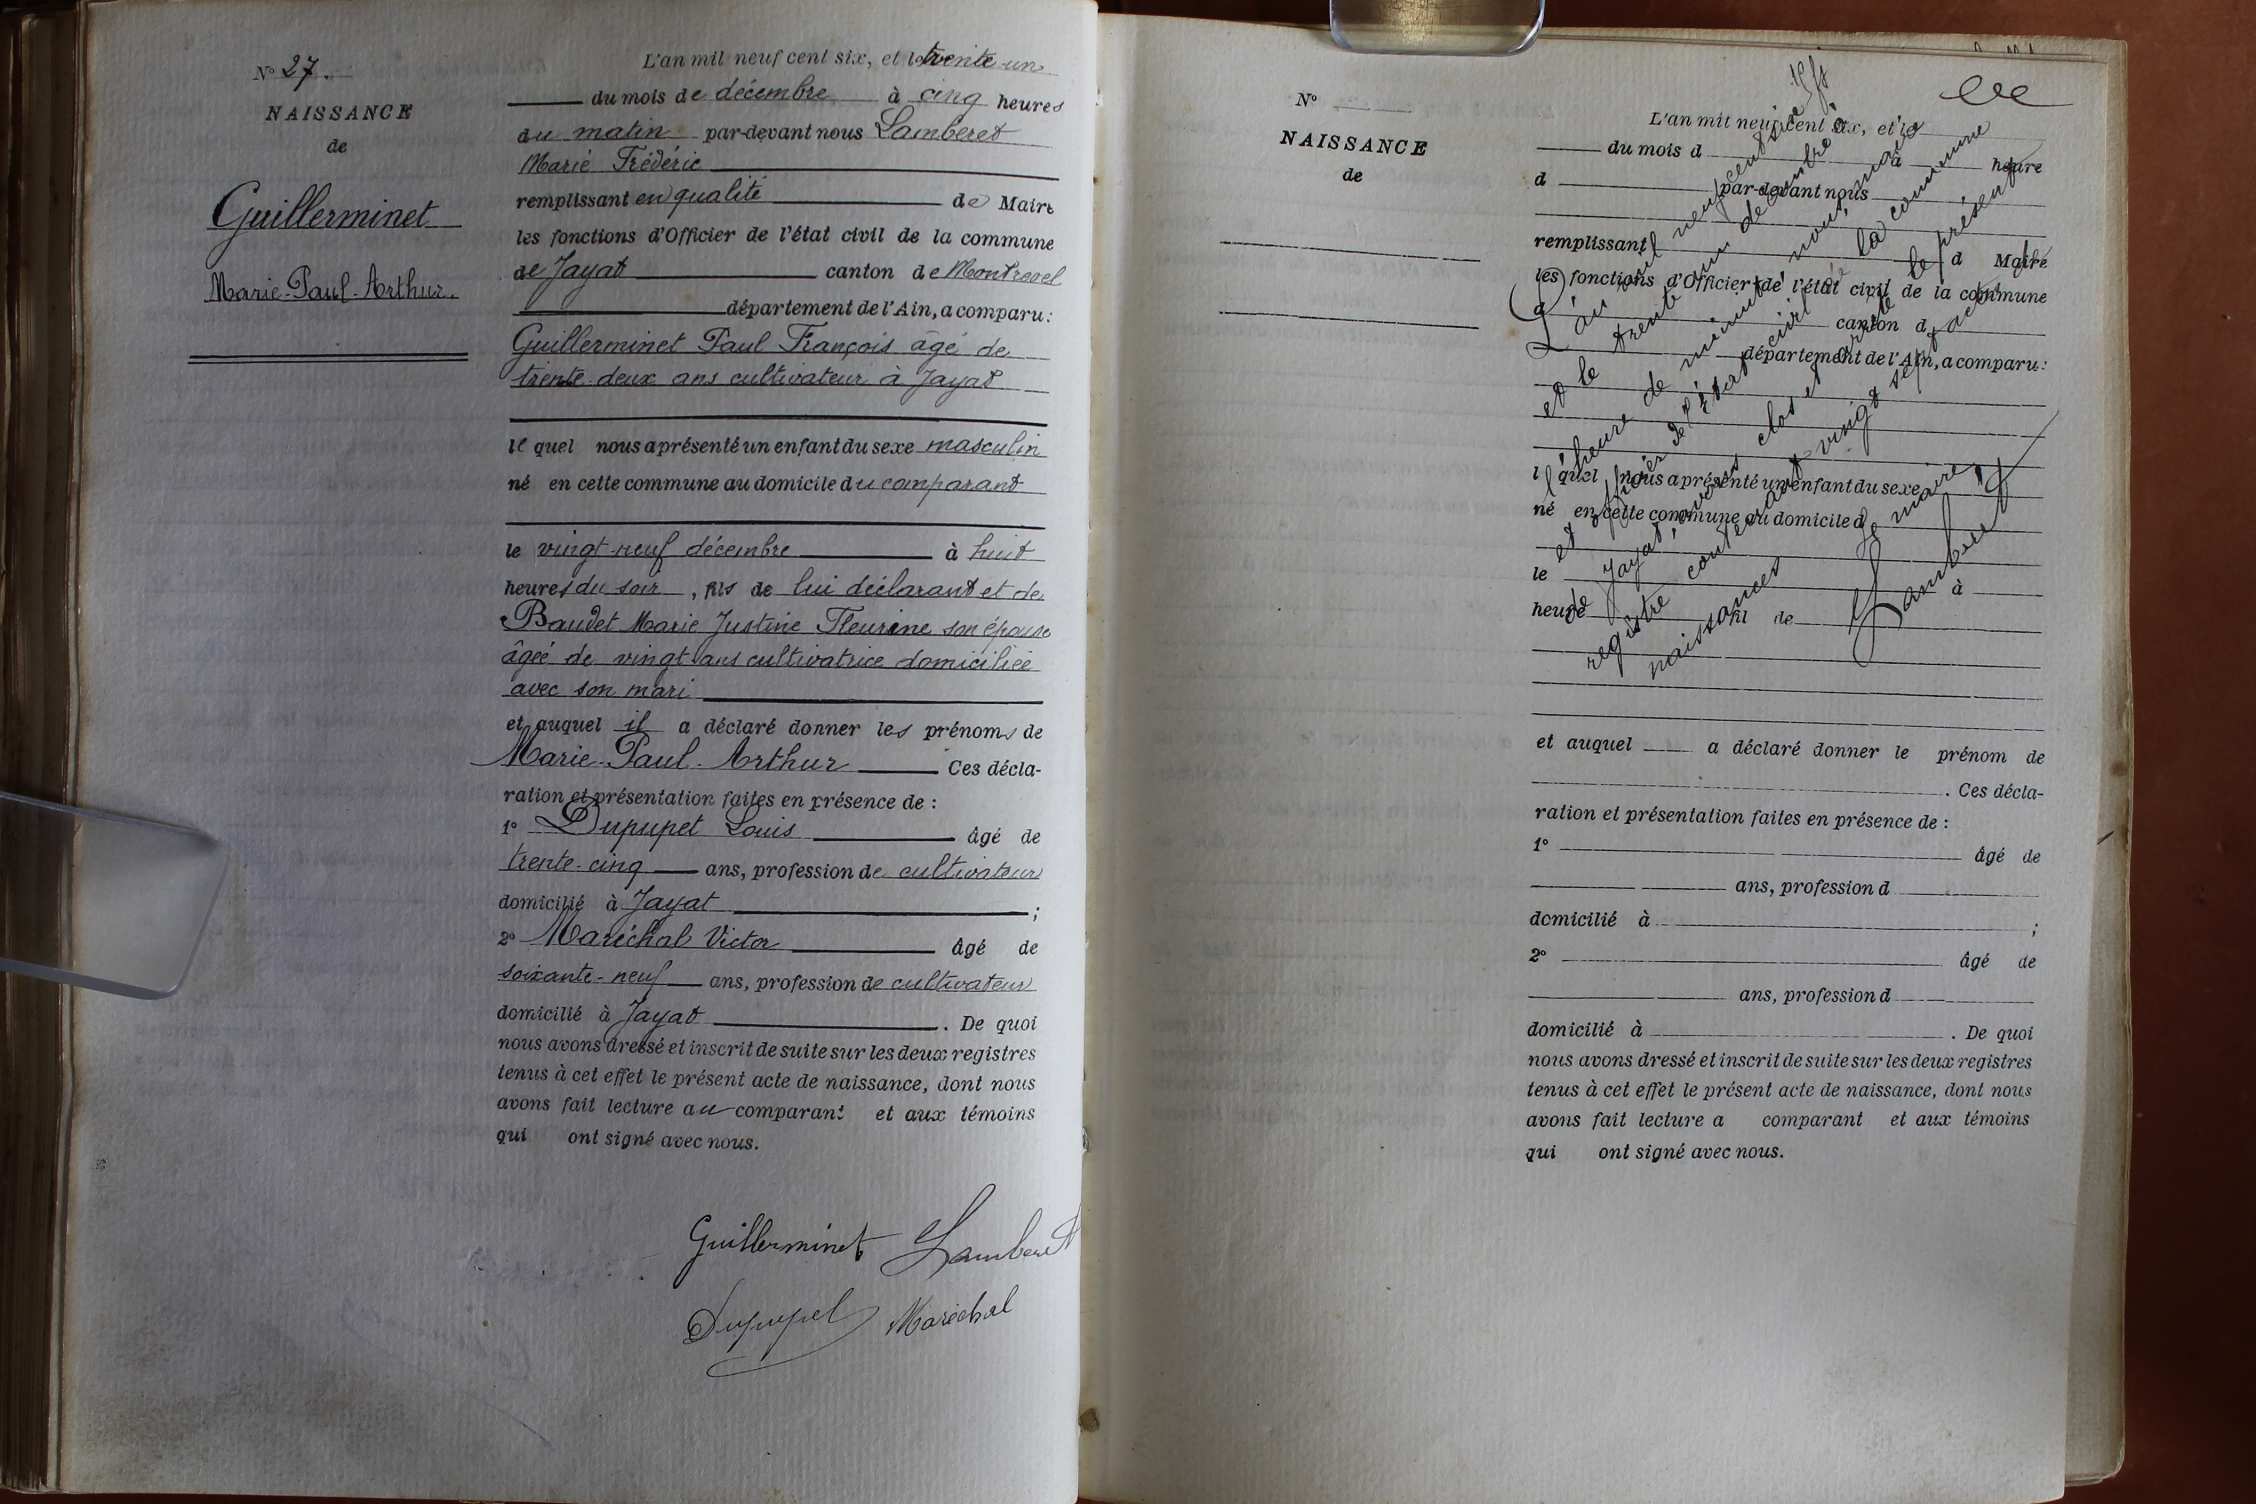 N° 27.
NAISSANCE
de
Guillerminet
Marie-Paul-Arthur.
L'an mil neuf cent six, et le trente-un
du mois de décembre à cinq heures
du matin par-devant nous Lamberet
Marie Frédéric
remplissant en qualité de Maire
les fonctions d'Officier de l'état civil de la commune
de Jayat canton de Montrevel
département de l'Ain, a comparu:
Guillerminet Paul François âgé de
trente-deux ans cultivateur à Jayat
le quel nous a présenté un enfant du sexe masculin
né en cette commune au domicile du comparant
le vingt-neuf décembre à huit
heures du soir, fils de lui déclarant et de
Baudet Marie Justine Fleurine son épouse
âgée de vingt ans cultivatrice domiciliée
avec son mari
et auquel il a déclaré donner les prénoms de
Marie-Paul-Arthur Ces décla-
ration et présentation faites en présence de :
1° Dupupet Louis âgé de
trente-cinq ans, profession de cultivateur
domicilié à Jayat ;
2° Maréchal Victor âgé de
soixante-neuf ans, profession de cultivateur
domicilié à Jayat . De quoi
nous avons dressé et inscrit de suite sur les deux registres
tenus à cet effet le présent acte de naissance, dont nous
avons fait lecture au comparant et aux témoins
qui ont signé avec nous.
Guillerminet Lamberet
Dupupet Maréchal
N°
NAISSANCE
de
L'an mil neuf cent six, et le
du mois d à heure
d par-devant nous
remplissant d Maire
les fonctions d'Officier de l'état civil de la commune
d canton d
département de l'Ain, a comparu:
l quel nous a présenté un enfant du sexe
né en cette commune au domicile d
le à
heure fil de
et auquel a déclaré donner le prénom de
. Ces décla-
ration et présentation faites en présence de :
1° âgé de
ans, profession d
domicilié à ;
2° âgé de
ans, profession d
domicilié à . De quoi
nous avons dressé et inscrit de suite sur les deux registres
tenus à cet effet le présent acte de naissance, dont nous
avons fait lecture a comparant et aux témoins
qui ont signé avec nous.
L'an mil neuf cent six
et le trente un décembre à
l'heure de minuit nous maire
et officier de l'état civil de la commune
de Jayat, avons clos et arrêté le présent
registre contenant vingt sept actes de
naissances
Le maire,
Lamberet